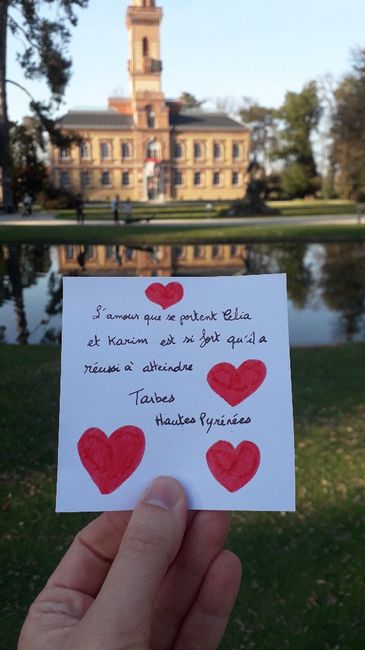 L'amour que se portent Celia
et Karim est si fort qu'il a
réussi à atteindre
Tarbes
Hautes Pyrénées